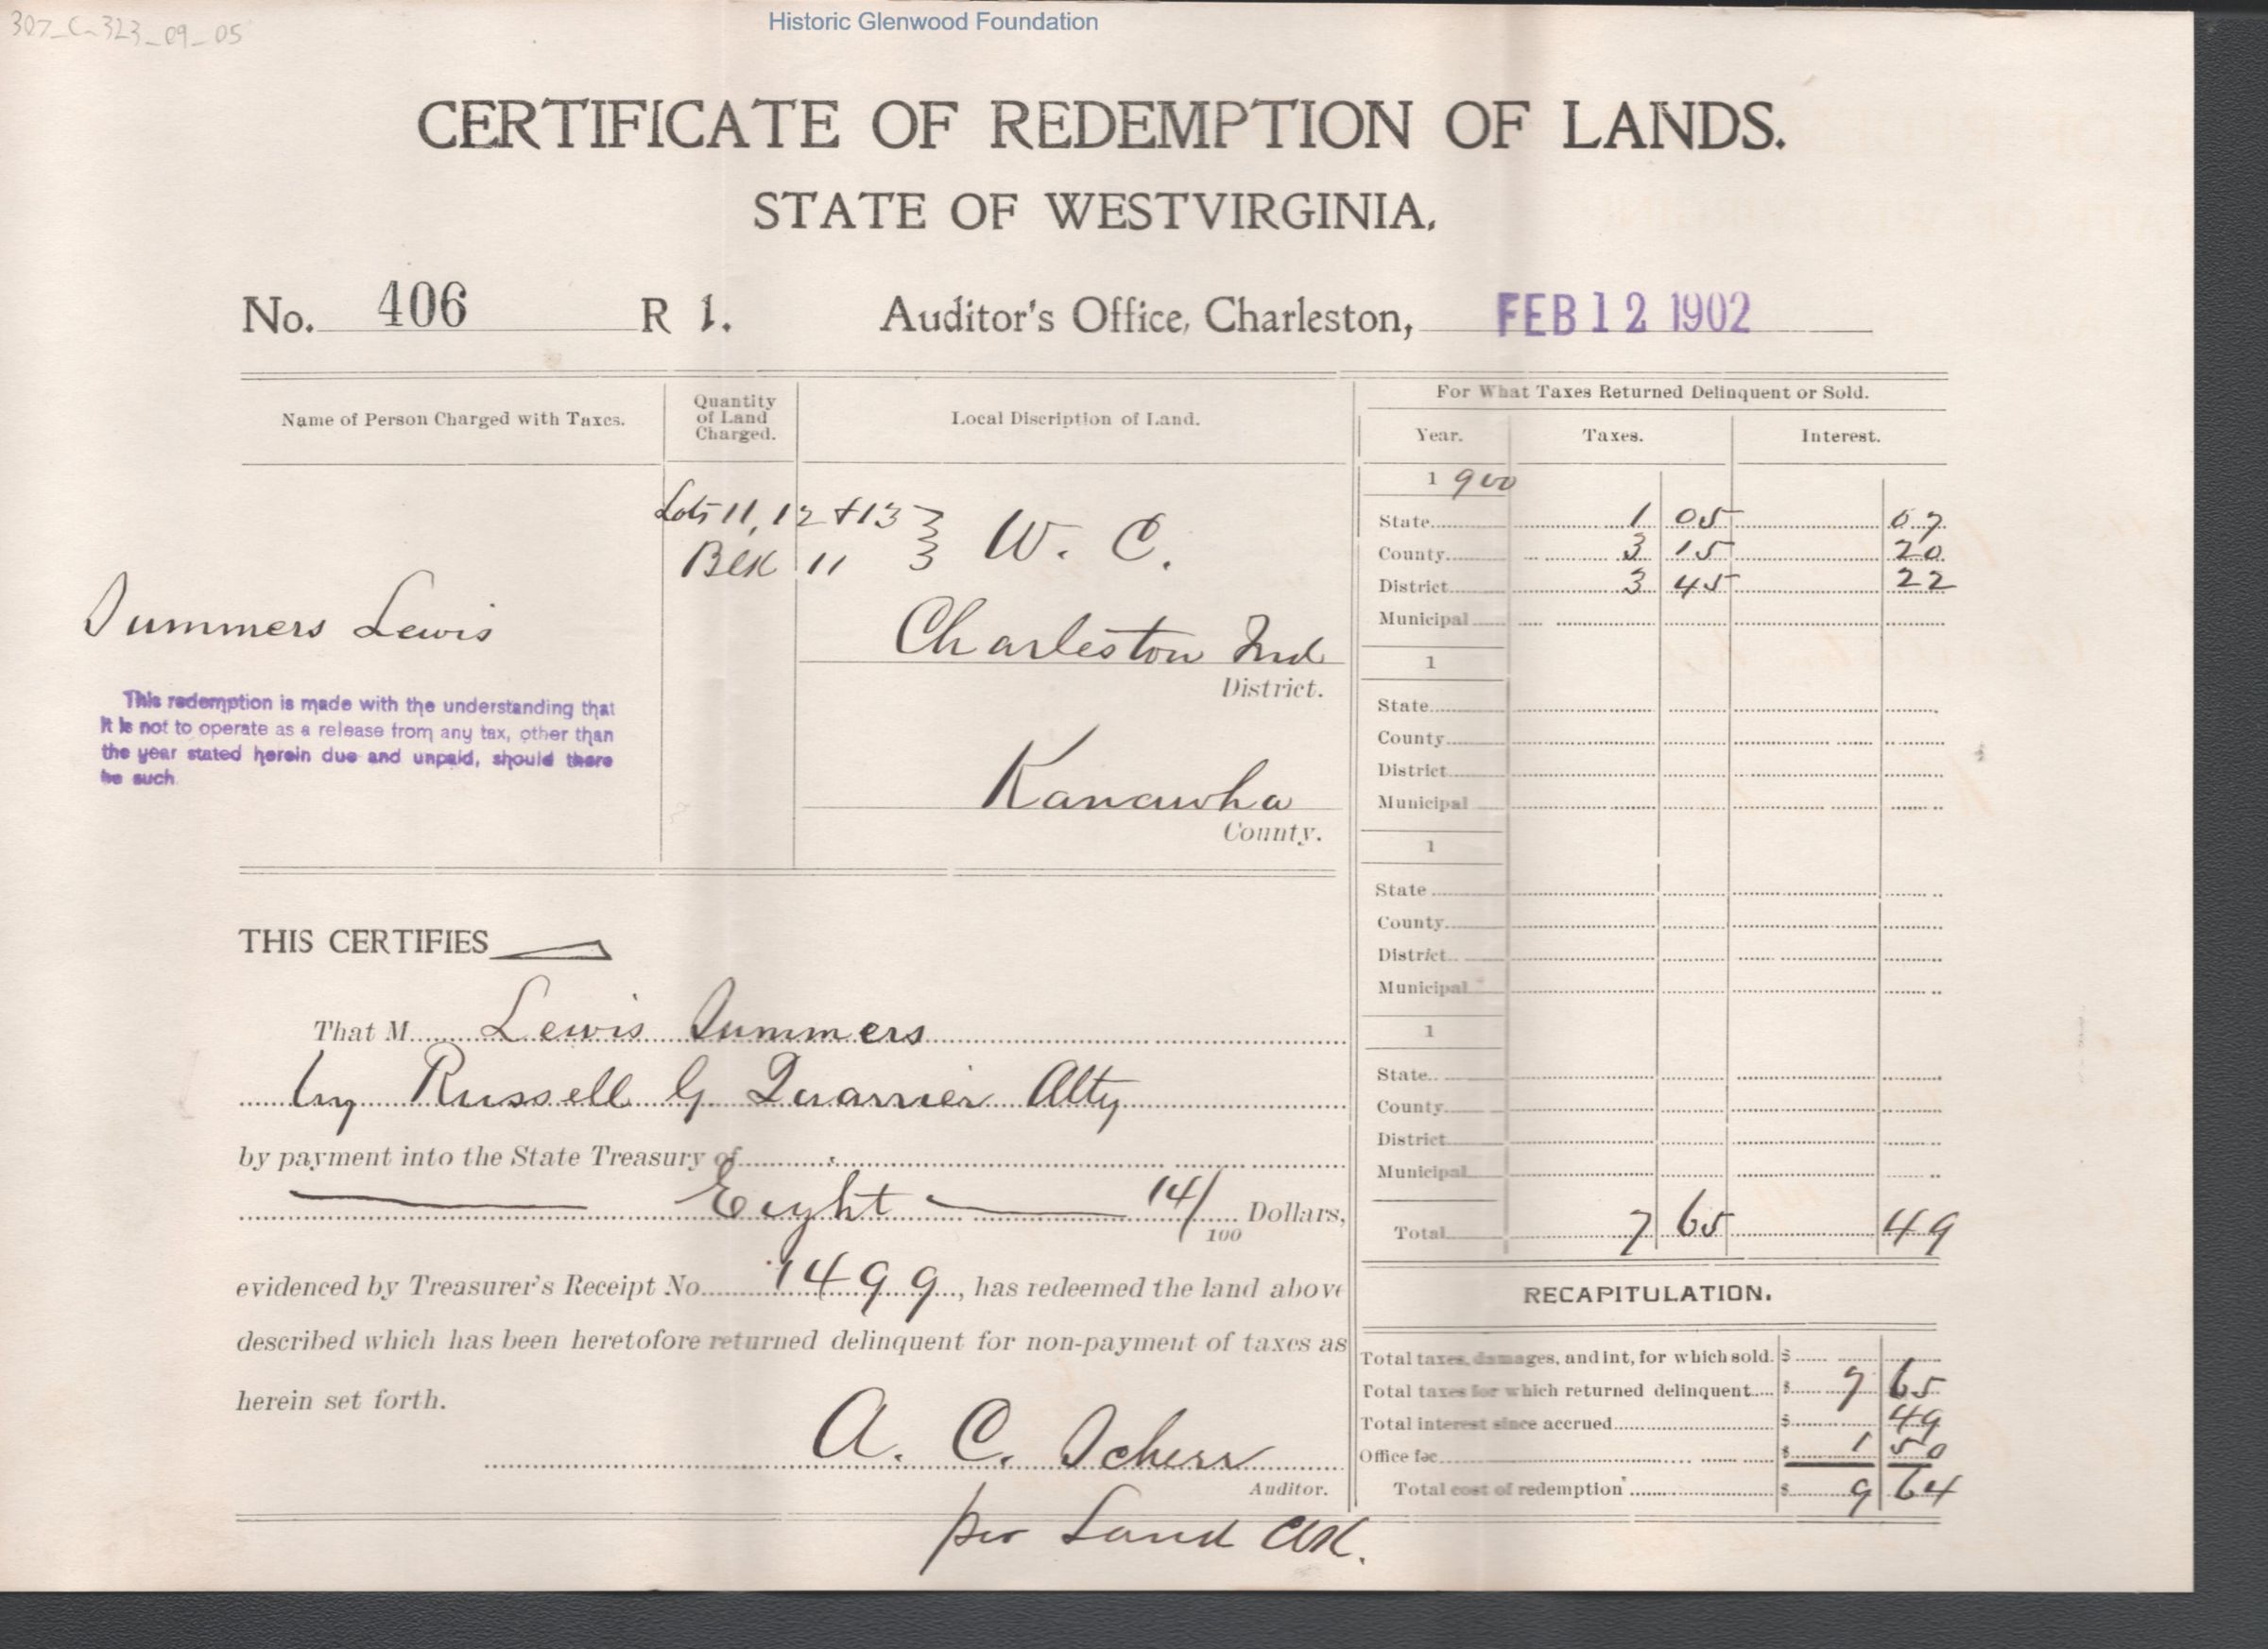 307_C-323_09_05
Historic Glenwood Foundation
CERTIFICATE OF REDEMPTION OF LANDS.
STATE OF WEST VIRGINIA.
No. 406 R 1. Auditor's Office, Charleston, FEB 12 1902
Name of Person Charged with Taxes.
Quantity
of Land
Charged.
Local Discription of Land.
Lots 11, 12 + 13
Blk 11
W. C.
Summers Lewis
Charleston Ind
District.
This redemption is made with the understanding that
it is not to operate as a release from any tax, other than
the year stated herein due and unpaid, should there
be such.
Kanawha
County.
For What Taxes Returned Delinquent or Sold.
Year. Taxes. Interest.
1900
State 1 05 07
County 3 15 20
District 3 45 22
Municipal
1
State
County
District
Municipal
1
State
County
District
Municipal
1
State
County
District
Municipal
Total 7 65 49
THIS CERTIFIES
That M Lewis Summers
by Russell G Quarrier Atty
by payment into the State Treasury of
Eight 14/100 Dollars,
evidenced by Treasurer's Receipt No. 1499, has redeemed the land above
described which has been heretofore returned delinquent for non-payment of taxes as
herein set forth.
A. C. Scherr
Auditor.
per Land Clk.
RECAPITULATION.
Total taxes, damages, and int, for which sold. $
Total taxes for which returned delinquent $ 7 65
Total interest since accrued $ 49
Office fee $ 1 50
Total cost of redemption $ 9 64